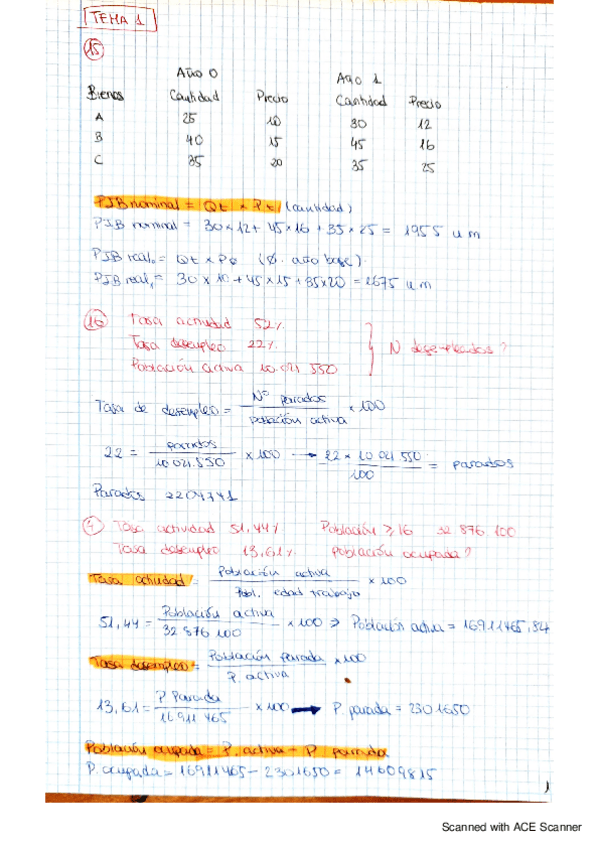 TEMA 1
15
Año 0 Año 1
Bienes Cantidad Precio Cantidad Precio
A 25 10 30 12
B 40 15 45 16
C 35 20 35 25
PIB nominal = Qt × Pt (cantidad)
PIB nominal = 30×12 + 45×16 + 35×25 = 1955 u m
PIB real₀ = Qt × P0 (0. año base)
PIB real₁ = 30 × 10 + 45 × 15 + 35×20 = 1675 u m
16 Tasa actividad 52%
Tasa desempleo 22% N desempleados?
Población activa 10.021.550
Tasa de desempleo = Nº parados / población activa × 100
22 = parados / 10.021.550 × 100 → 22 × 10 021 550 / 100 = parados
Parados 2204741
Tasa actividad 51,44% Población ≥16 32 876 100
Tasa desempleo 13,61% población ocupada?
Tasa actividad = Población activa / Pobl. edad trabajo × 100
51,44 = Población activa / 32 876 100 × 100 ⇒ Población activa = 16911465,84
Tasa desempleo = Población parada / P. activa × 100
13,61 = P. Parada / 16911 465 × 100 → P. parada = 2301650
Población ocupada = P. activa - P parada
P. ocupada = 16911465 - 2301650 = 14609815
Scanned with ACE Scanner